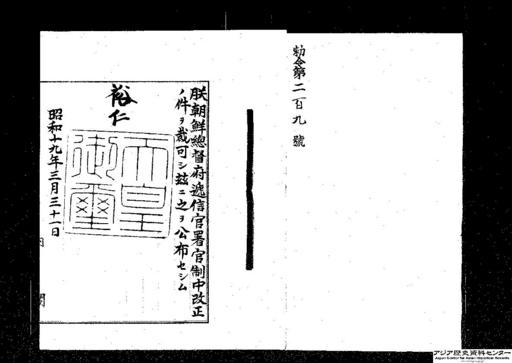 勅令第二百九號
朕朝鮮總督府遞信官署官制中改正
ノ件ヲ裁可シ玆ニ之ヲ公布セシム
裕仁
天皇御璽
昭和十九年三月三十一日
内閣
アジア歴史資料センター
Japan Center for Asian Historical Records